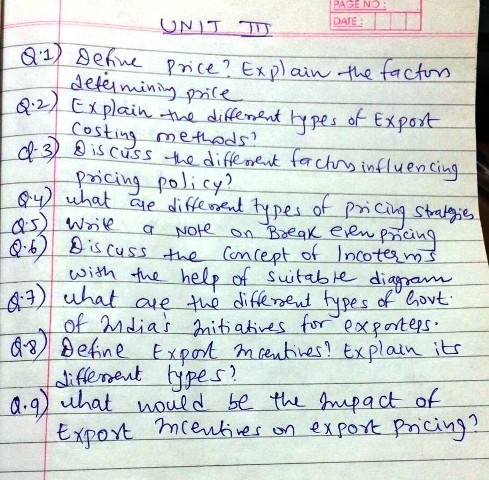 PAGE NO:
DATE:
UNIT III
Q.1) Define price? Explain the factors
determining price
Q.2) Explain the different types of Export
Costing methods?
Q.3) Discuss the different factors influencing
pricing policy?
Q.4) what are different types of pricing strategies
Q.5) Write a Note on Break even pricing
Q.6) Discuss the Concept of Incoterms
with the help of suitable diagram
Q.7) what are the different types of Govt.
of India's Initiatives for exporters.
Q.8) Define Export Incentives? Explain its
different types?
Q.9) what would be the Impact of
Export Incentives on export pricing?